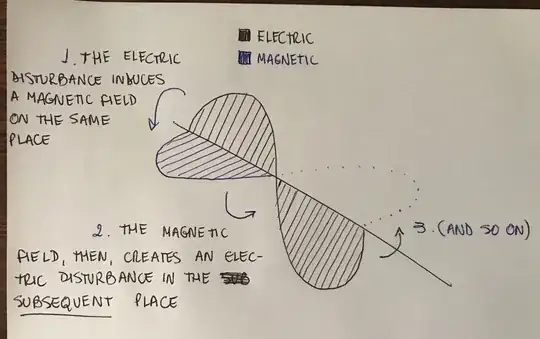 ELECTRIC
MAGNETIC
1. THE ELECTRIC
DISTURBANCE INDUCES
A MAGNETIC FIELD
ON THE SAME
PLACE
2. THE MAGNETIC
FIELD, THEN, CREATES AN ELEC-
TRIC DISTURBANCE IN THE
SUBSEQUENT PLACE
3. (AND SO ON)